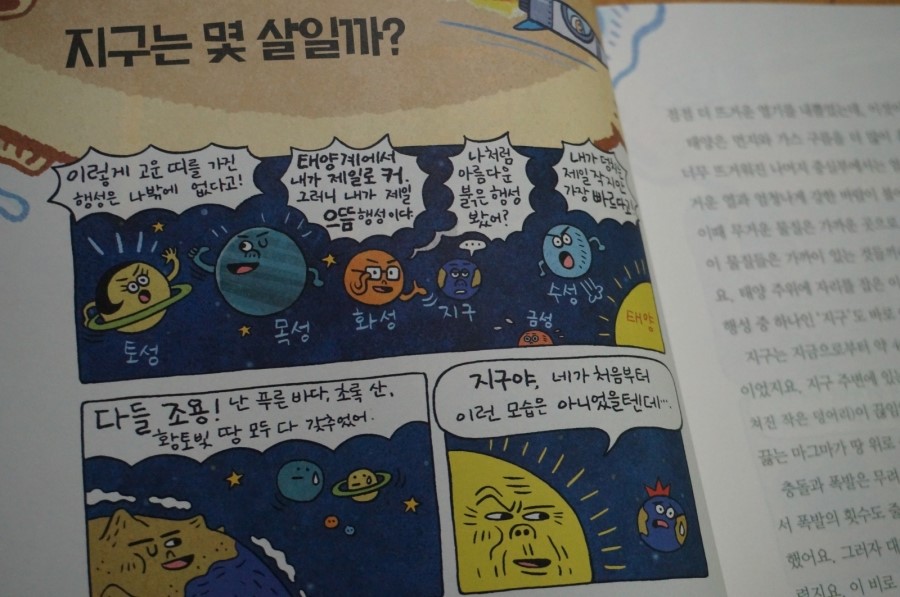 지구는 몇 살일까?
이렇게 고운 띠를 가진
행성은 나밖에 없다고!
태양계에서
내가 제일로 커.
그러니 내가 제일
으뜸 행성이다
나처럼
아름다운
붉은 행성
봤어?
내가
제일 작지만
가장 빠르다고
토성
목성
화성
지구
금성
수성
태양
다들 조용! 난 푸른 바다, 초록 산,
황토빛 땅 모두 다 갖추었어.
지구야, 네가 처음부터
이런 모습은 아니었을텐데….
점점 더 뜨거운 열기를 내뿜었는데,
태양은 먼지와 가스 구름을 더 많이
너무 뜨거워진 나머지 중심부에서는
거운 열과 엄청나게 강한 바람이
이때 무거운 물질은 가까운 곳으로
이 물질들은 가까이 있는 것들끼리
요. 태양 주위에 자리를 잡은
행성 중 하나인 '지구'도 바로
지구는 지금으로부터 약
이었지요. 지구 주변에 있는
쳐진 작은 덩어리)이 끊임
끓는 마그마가 땅 위로
충돌과 폭발은 무려
서 폭발의 횟수도
했어요. 그러자
이 비로